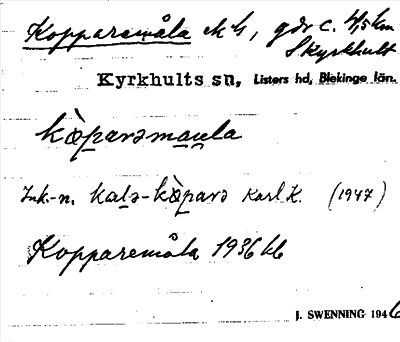 Kopparemåla
gdr c. 4,5 km
S Kyrkhult
Kyrkhults sn, Listers hd, Blekinge län.
kòparəmaula
Ink.-n. kalə-kòparə Karl K. (1947)
Kopparemåla 1936 kb
J. SWENNING 1946